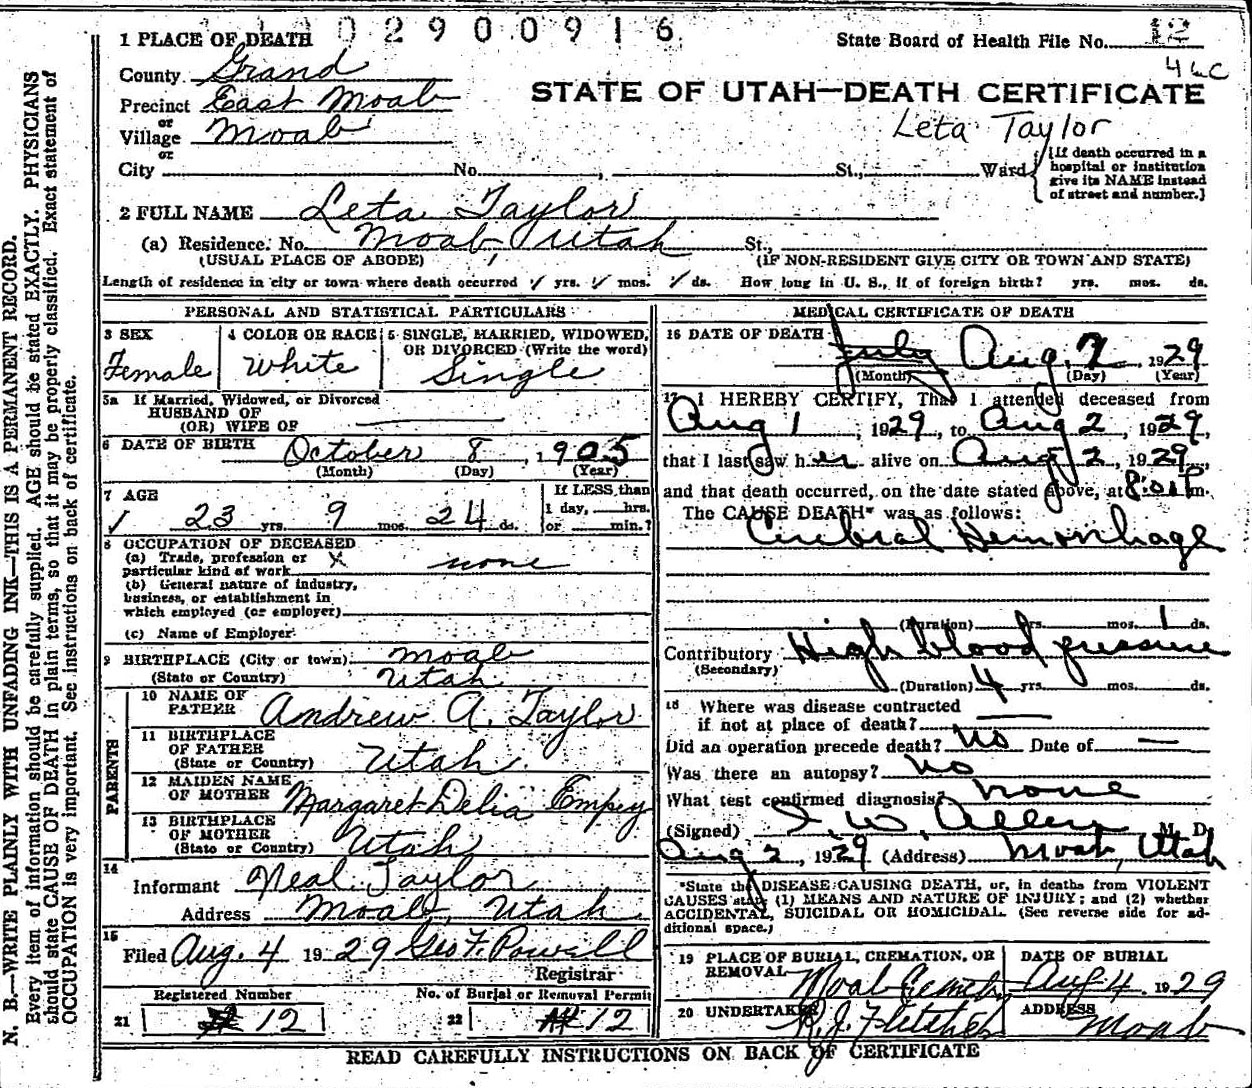 02900916
1 PLACE OF DEATH
State Board of Health File No. 12
County Grand
Precinct East Moab
or
Village Moab
or
City No. , St., Ward
STATE OF UTAH—DEATH CERTIFICATE
Leta Taylor
[If death occurred in a
hospital or institution
give its NAME instead
of street and number.]
2 FULL NAME Leta Taylor
(a) Residence. No. Moab, Utah St.,
(USUAL PLACE OF ABODE) (IF NON-RESIDENT GIVE CITY OR TOWN AND STATE)
Length of residence in city or town where death occurred ✓ yrs. ✓ mos. ✓ ds. How long in U. S., if of foreign birth? yrs. mos. ds.
PERSONAL AND STATISTICAL PARTICULARS
3 SEX
Female
4 COLOR OR RACE
White
5 SINGLE, MARRIED, WIDOWED,
OR DIVORCED (Write the word)
Single
5a If Married, Widowed, or Divorced
HUSBAND OF
(OR) WIFE OF
6 DATE OF BIRTH October 8, 1905
(Month) (Day) (Year)
7 AGE
✓ 23 yrs. 9 mos. 24 ds.
If LESS than
1 day, hrs.
or min.?
8 OCCUPATION OF DECEASED
(a) Trade, profession or
particular kind of work X none
(b) General nature of industry,
business, or establishment in
which employed (or employer)
(c) Name of Employer
9 BIRTHPLACE (City or town) Moab
(State or Country) Utah
PARENTS
10 NAME OF
FATHER Andrew A. Taylor
11 BIRTHPLACE
OF FATHER
(State or Country) Utah.
12 MAIDEN NAME
OF MOTHER Margaret Delia Empey
13 BIRTHPLACE
OF MOTHER
(State or Country) Utah
14
Informant Neal Taylor
Address Moab, Utah
15
Filed Aug. 4 1929 Geo F. Powell
Registrar
Registered Number
21 12
No. of Burial or Removal Permit
22 12
MEDICAL CERTIFICATE OF DEATH
16 DATE OF DEATH July Aug. 2, 1929
(Month) (Day) (Year)
17 I HEREBY CERTIFY, That I attended deceased from
Aug 1, 1929, to Aug 2, 1929,
that I last saw her alive on Aug 2, 1929,
and that death occurred, on the date stated above, at 8:01 P m.
The CAUSE DEATH* was as follows:
Cerebral Hemorrhage
(Duration) yrs. mos. 1 ds.
Contributory High blood pressure
(Secondary)
(Duration) 4 yrs. mos. ds.
18 Where was disease contracted
if not at place of death?
Did an operation precede death? No Date of —
Was there an autopsy? No
What test confirmed diagnosis? none
(Signed) I. W. Allen M. D.
Aug 2, 1929 (Address) Moab, Utah
*State the DISEASE CAUSING DEATH, or, in deaths from VIOLENT
CAUSES state (1) MEANS AND NATURE OF INJURY; and (2) whether
ACCIDENTAL, SUICIDAL OR HOMICIDAL. (See reverse side for ad-
ditional space.)
19 PLACE OF BURIAL, CREMATION, OR
REMOVAL Moab Cemetry
DATE OF BURIAL
Aug 4, 1929
20 UNDERTAKER R. J. Fletcher
ADDRESS Moab
READ CAREFULLY INSTRUCTIONS ON BACK OF CERTIFICATE
N. B.—WRITE PLAINLY WITH UNFADING INK—THIS IS A PERMANENT RECORD.
Every item of information should be carefully supplied. AGE should be stated EXACTLY. PHYSICIANS
should state CAUSE OF DEATH in plain terms, so that it may be properly classified. Exact statement of
OCCUPATION is very important. See instructions on back of certificate.